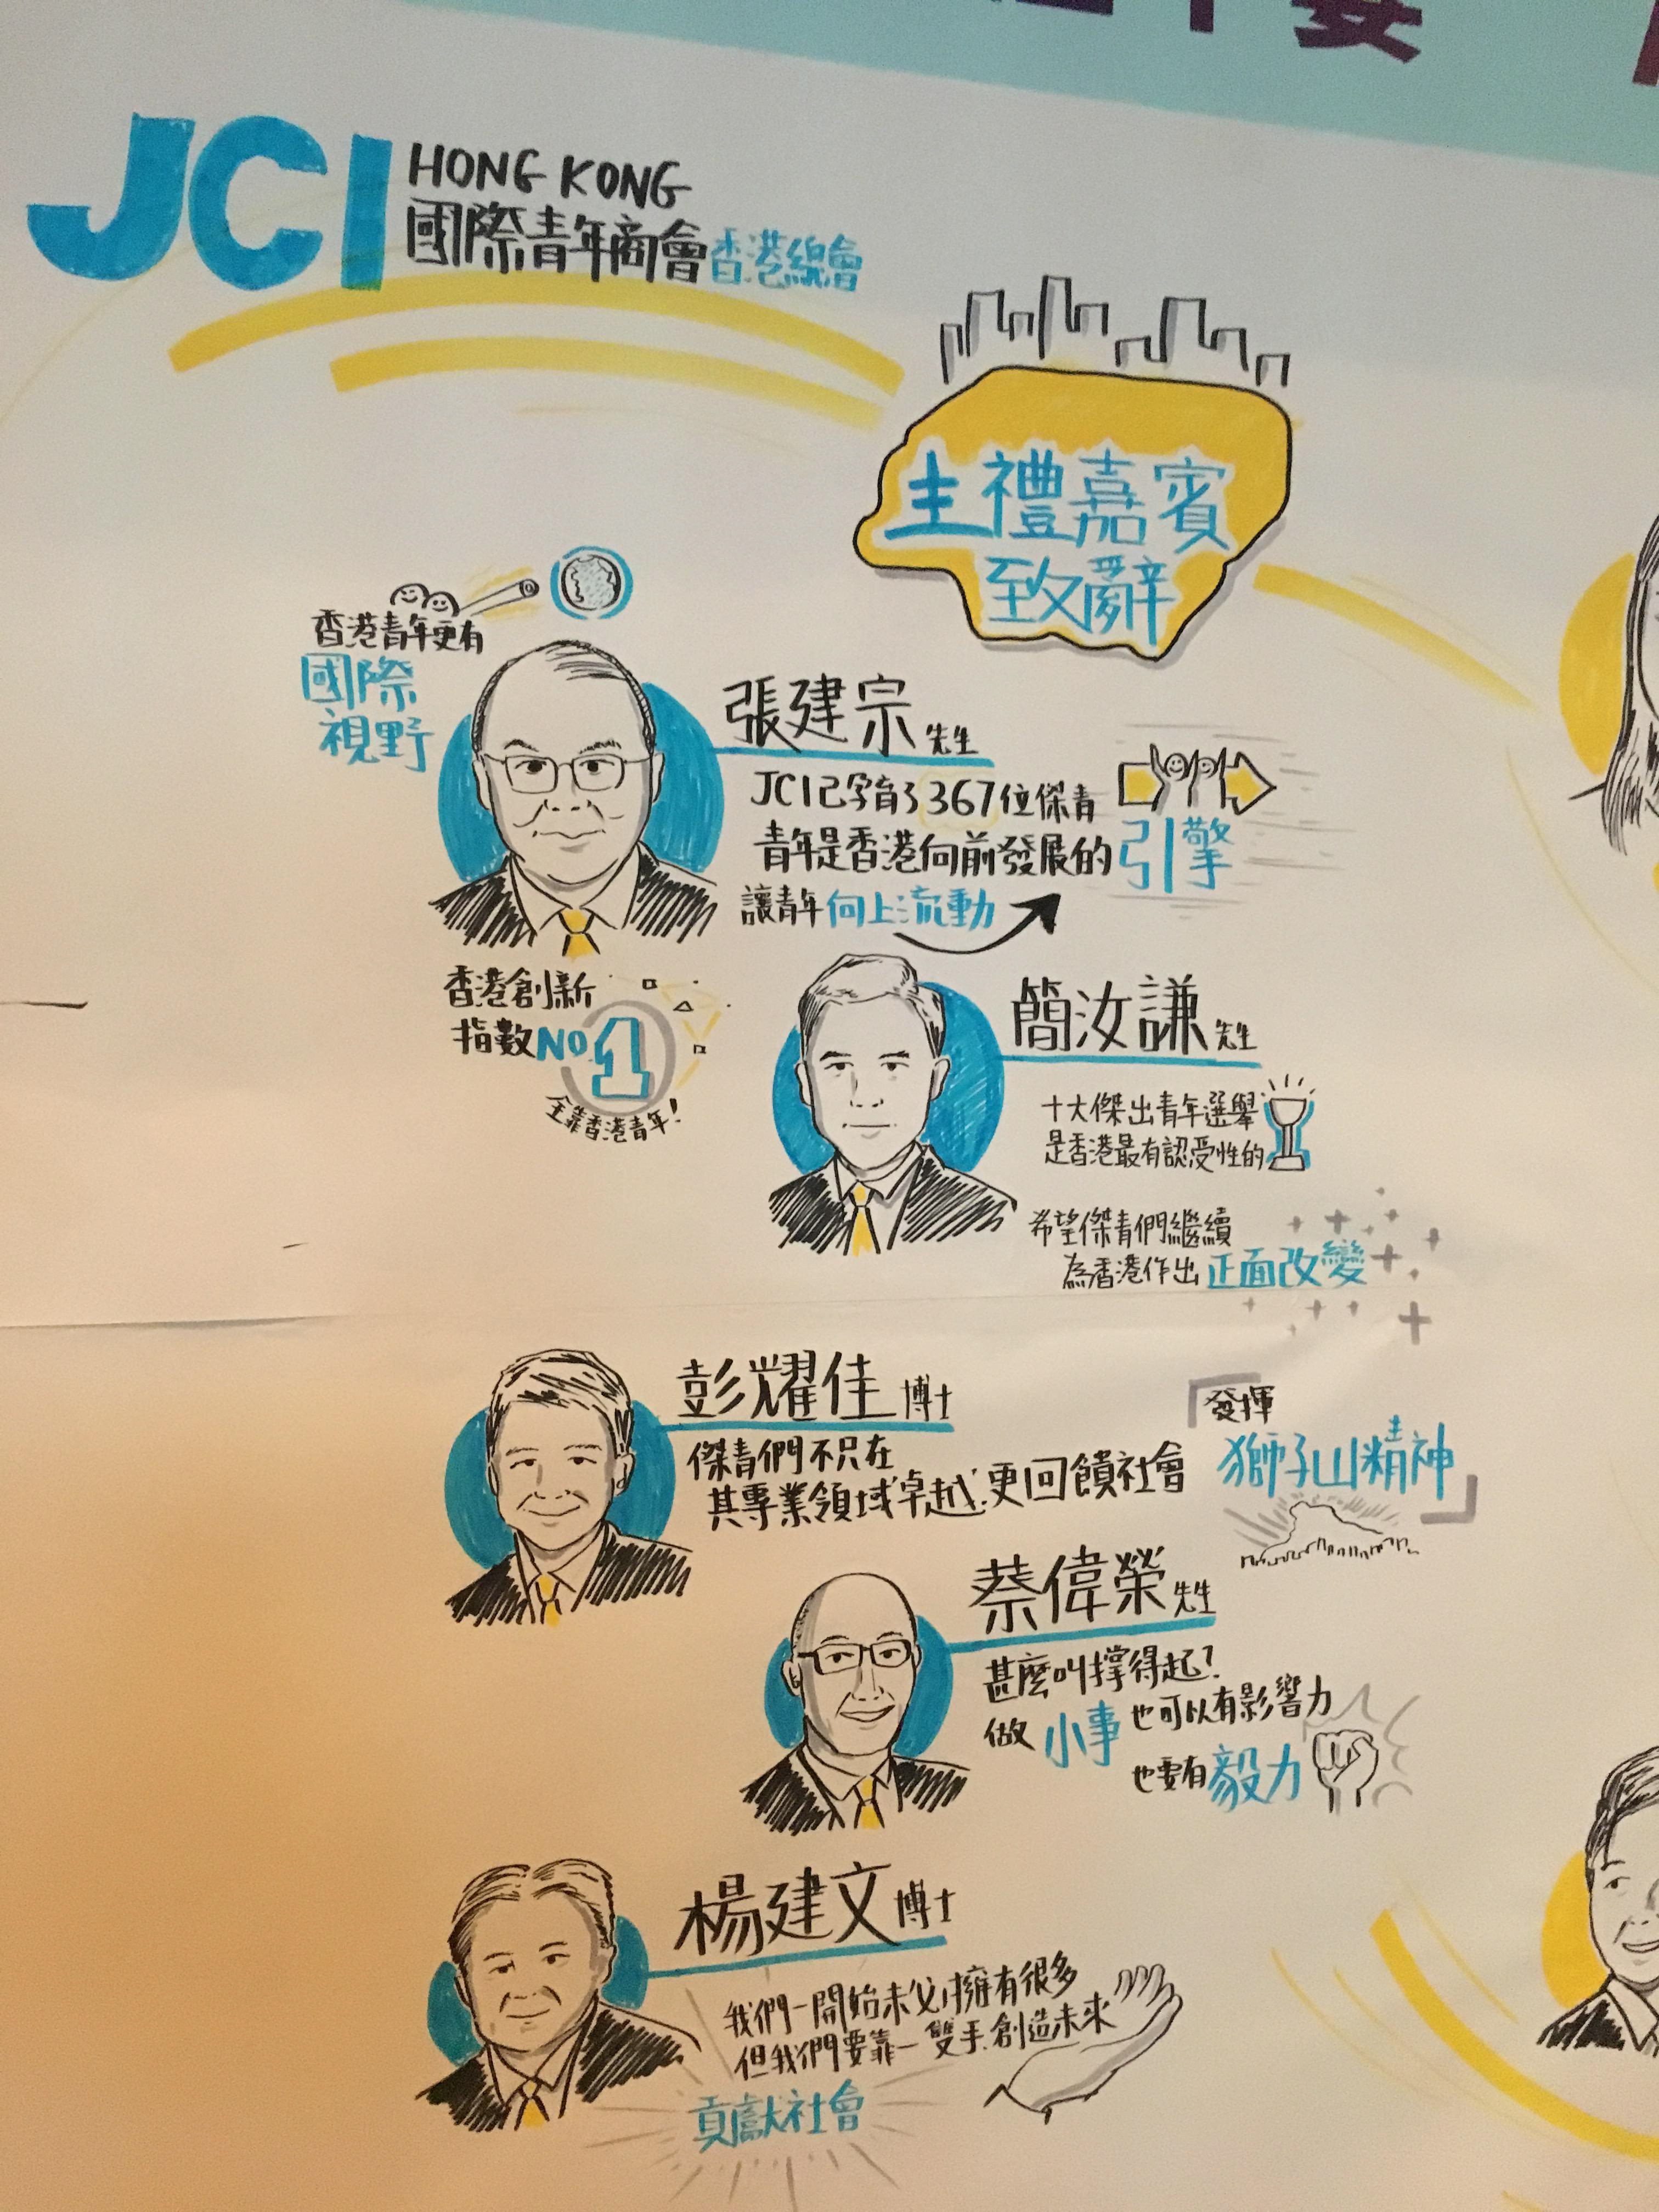 JCI
HONG KONG
國際青年商會香港總會
主禮嘉賓
致辭
香港青年更有
國際
視野
張建宗先生
JCI已孕育了367位傑青
青年是香港向前發展的引擎
讓青年向上流動
香港創新
指數NO.1
全靠香港青年!
簡汝謙先生
十大傑出青年選舉
是香港最有認受性的
希望傑青們繼續
為香港作出正面改變
彭耀佳博士
傑青們不只在
其專業領域卓越,更回饋社會
發揮
獅子山精神
蔡偉榮先生
甚麼叫撐得起?
做小事也可以有影響力
也要有毅力
楊建文博士
我們一開始未必擁有很多
但我們要靠一雙手創造未來
貢獻社會